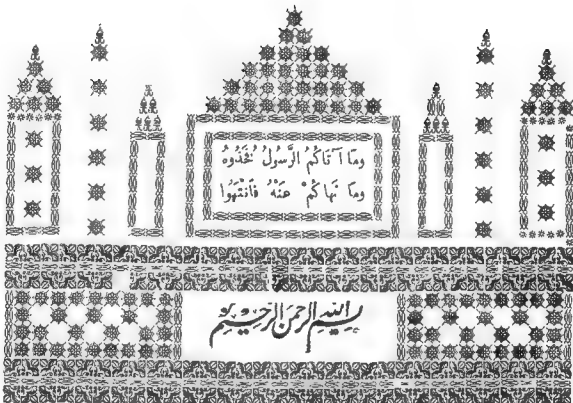 وَمَا آتَاكُمُ الرَّسُولُ فَخُذُوهُ
وَمَا نَهَاكُمْ عَنْهُ فَانْتَهُوا
بسم الله الرحمن الرحيم